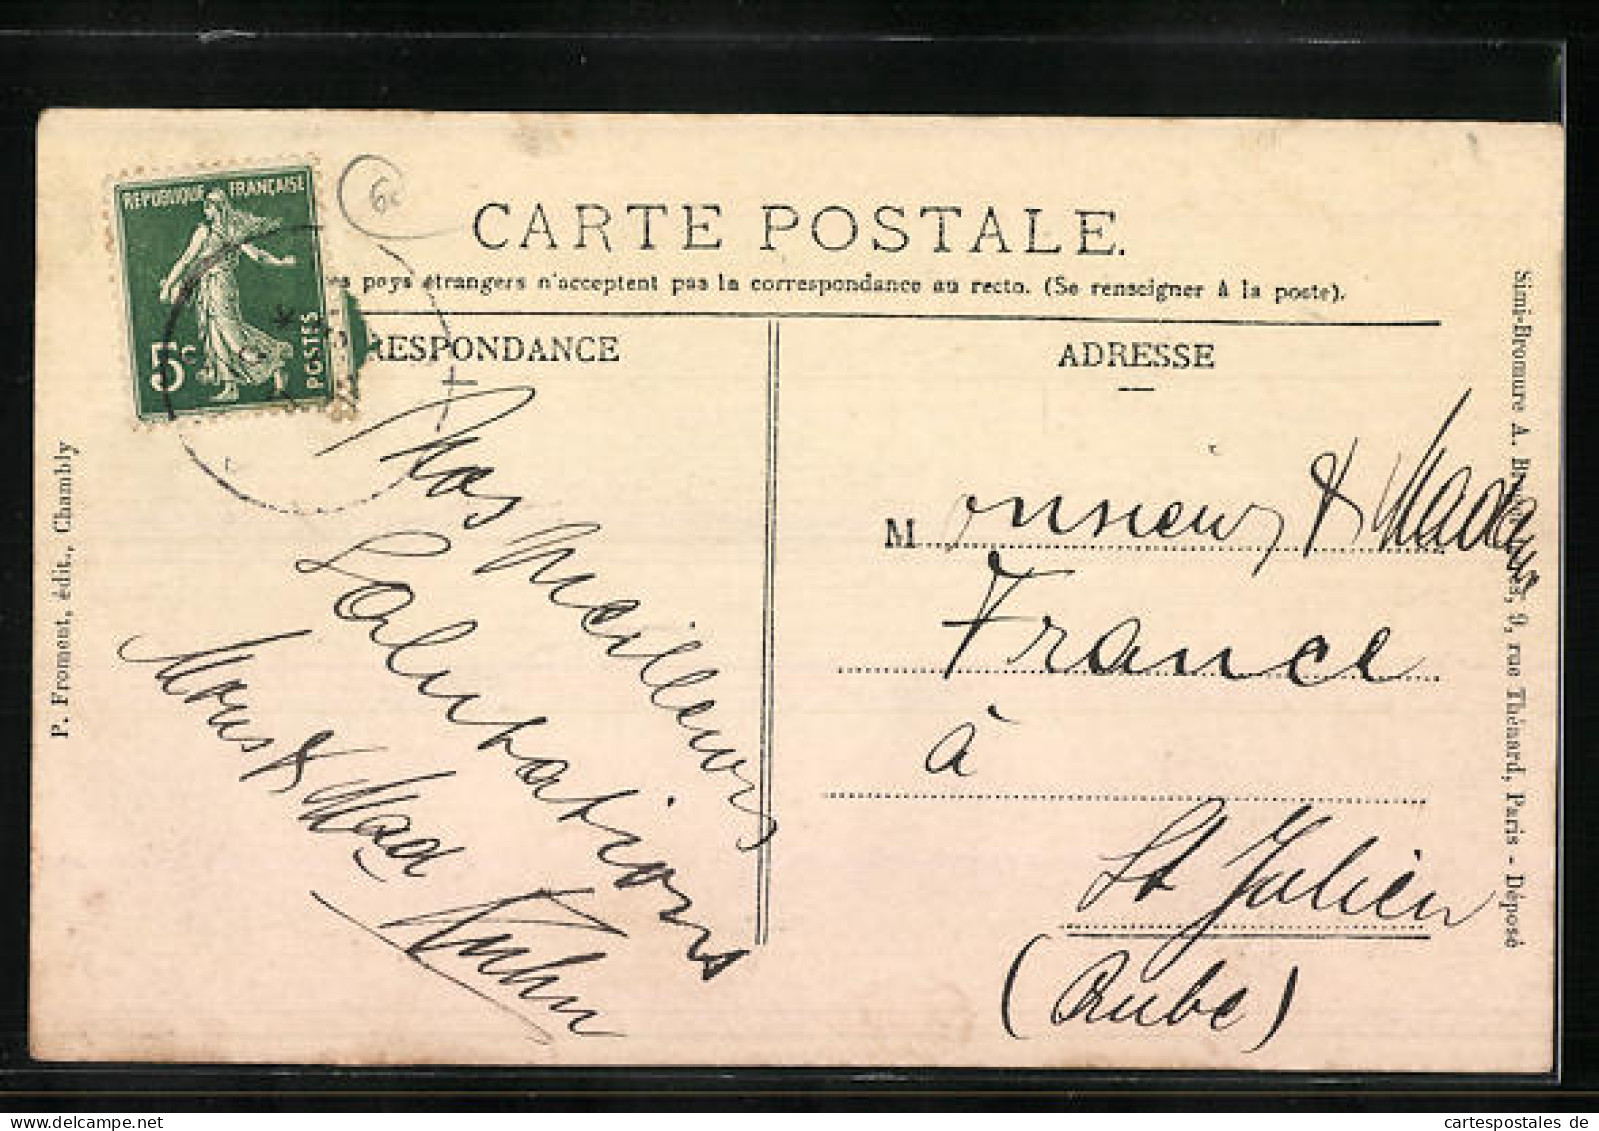 REPUBLIQUE FRANÇAISE
5c
POSTES
60
CARTE POSTALE.
es pays étrangers n'acceptent pas la correspondance au recto. (Se renseigner à la poste).
RESPONDANCE
Nos meilleurs
Salutations
Mons & Mad
Kuhn
ADRESSE
Monsieur & Madame
France
à
St Julien
(Aube)
P. Froment, édit., Chambly
Simi-Bromure A. 9, rue Thénard, Paris - Déposé
cartespostales de